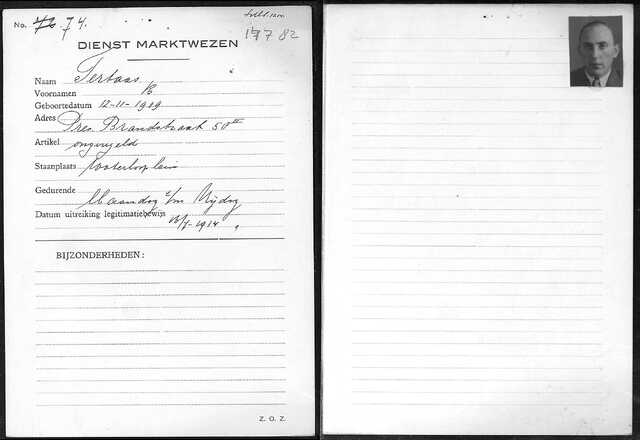 No. 74.
17782
DIENST MARKTWEZEN
Naam Terbaas
Voornamen
Geboortedatum 12-11-1919
Adres Pres. Brandstraat 50
Artikel ongeregeld
Standplaats Waterlooplein
Gedurende Maandag t/m Vrijdag
Datum uitreiking legitimatiebewijs
BIJZONDERHEDEN:
Z. O. Z.